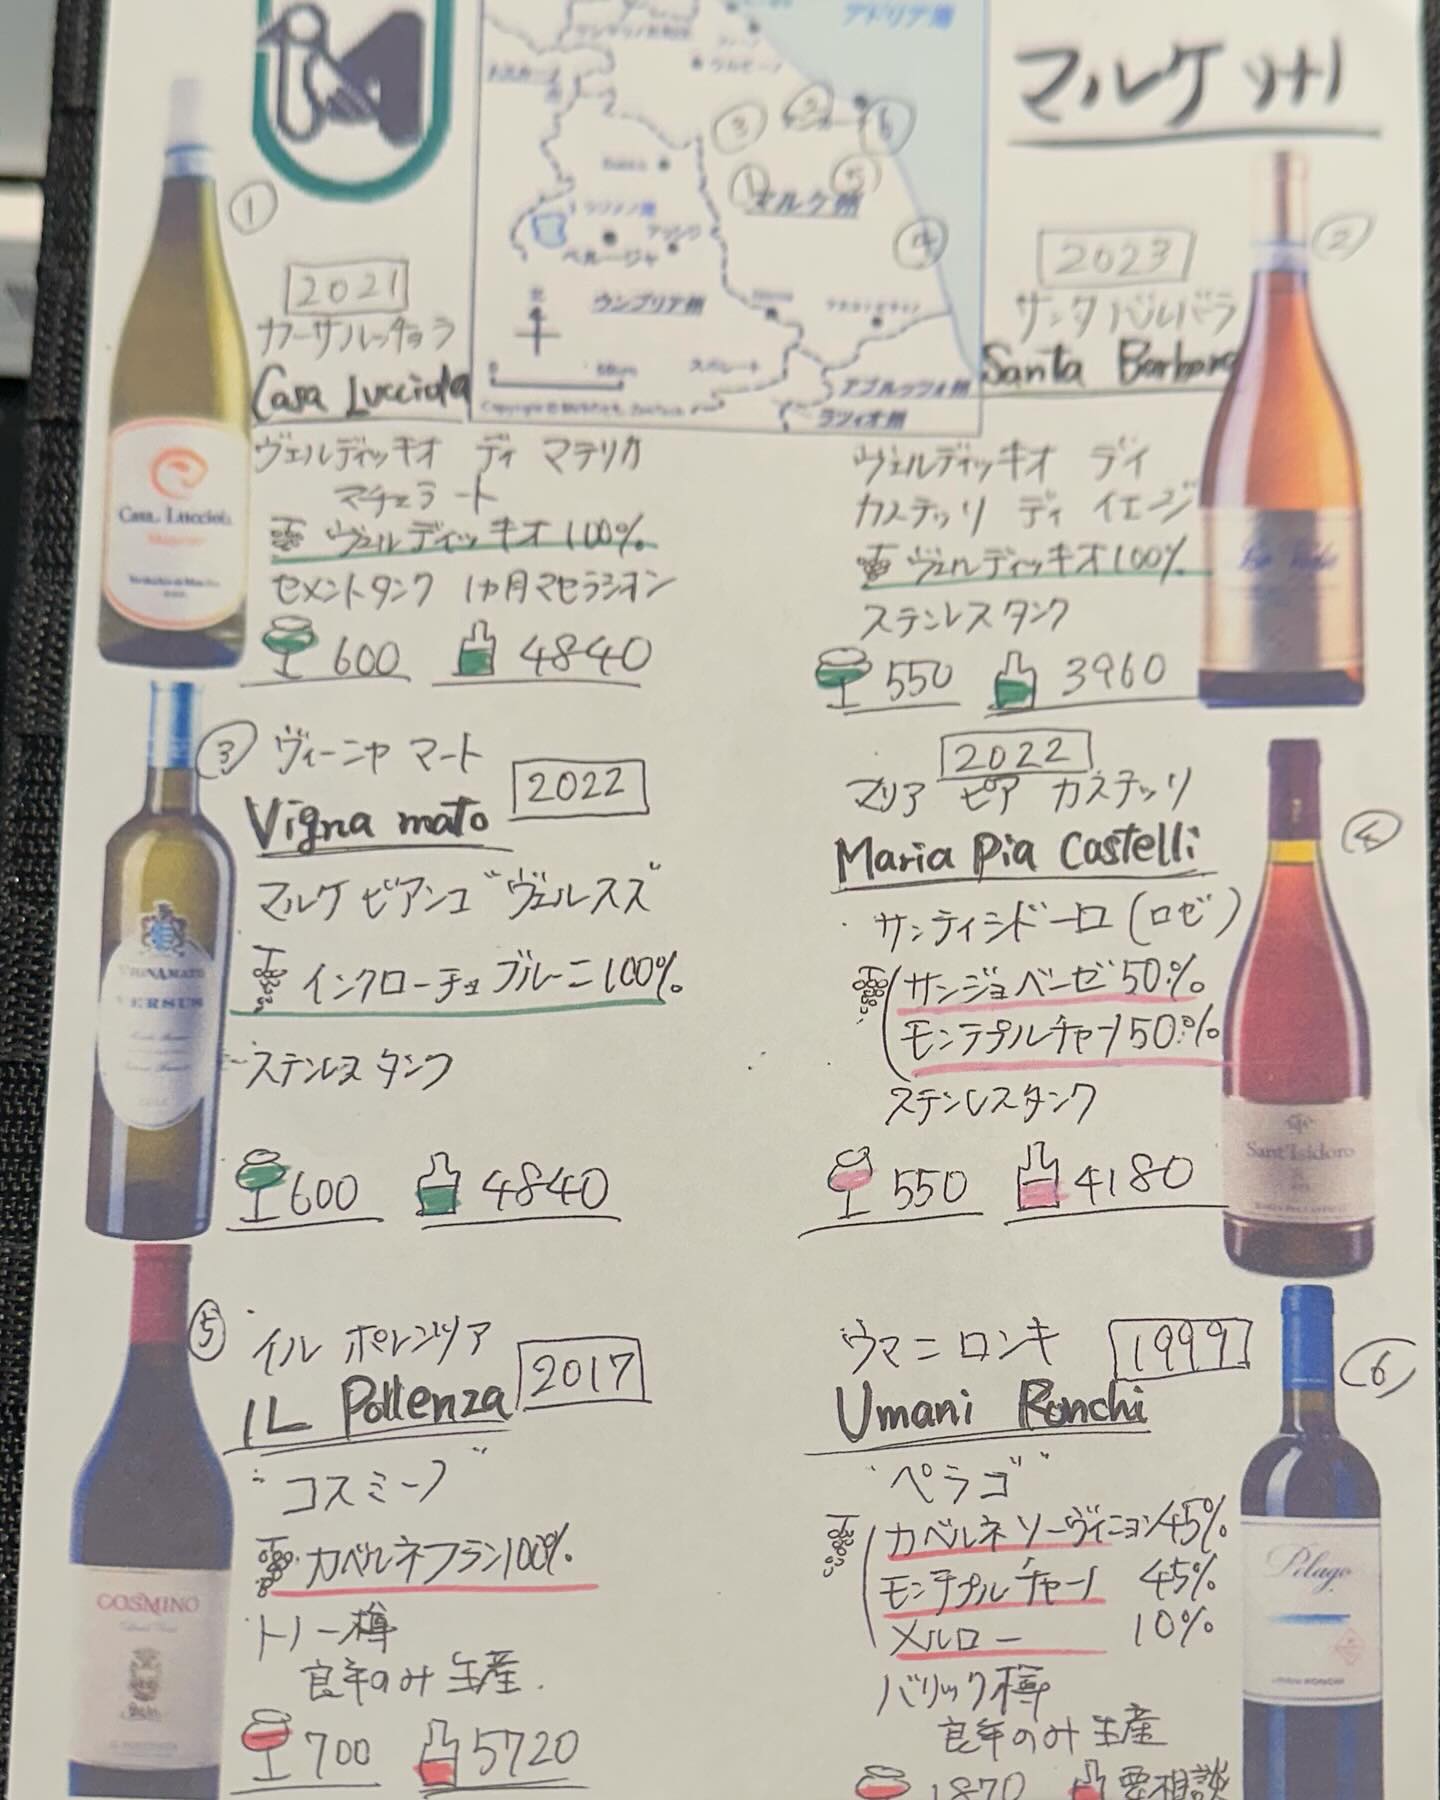 マルケ州
アドリア海
マルケ州
ペルージャ
ウンブリア州
北
アブルッツォ州
ラツィオ州
①
2021
カーサルッチョラ
Casa Lucciola
ヴェルディッキオ ディ マテリカ
マチェラート
ヴェルディッキオ100%
セメントタンク 1ヵ月マセラシオン
600 4840
Casa Lucciola
②
2023
サンタ バルバラ
Santa Barbara
ヴェルディッキオ デイ
カステッリ ディ イエージ
ヴェルディッキオ100%
ステンレスタンク
550 3960
③ ヴィーニャ マート
2022
Vigna mato
マルケ ビアンコ"ヴェルスス"
インクローチョブルーニ100%
ステンレスタンク
600 4840
VIGNAMATO
VERSUS
④
2022
マリア ピア カステッリ
Maria Pia Castelli
サンティシドーロ(ロゼ)
サンジョベーゼ50%
モンテプルチャーノ50%
ステンレスタンク
550 4180
Sant'Isidoro
⑤
イル ポレンツァ
2017
IL Pollenza
"コスミーノ"
カベルネフラン100%
トノー樽
良年のみ生産.
700 5720
COSMINO
⑥
ウマニ ロンキ
1999
Umani Ronchi
"ペラゴ"
カベルネソーヴィニヨン45%
モンテプルチャーノ 45%
メルロー 10%
バリック樽
良年のみ生産
1870 要相談
Pèlago
UMANI RONCHI